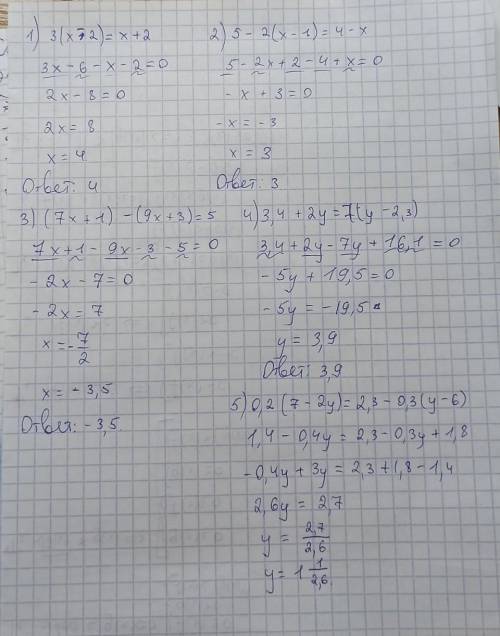 1) 3(x-2)=x+2
3x-6-x-2=0
2x-8=0
2x=8
x=4
Ответ: 4
2) 5-2(x-1)=4-x
5-2x+2-4+x=0
-x+3=0
-x=-3
x=3
Ответ: 3
3) (7x+1)-(9x+3)=5
7x+1-9x-3-5=0
-2x-7=0
-2x=7
x=-7/2
x=-3,5
Ответ: -3,5
4) 3,4+2y=7(y-2,3)
3,4+2y-7y+16,1=0
-5y+19,5=0
-5y=-19,5
y=3,9
Ответ: 3,9
5) 0,2(7-2y)=2,3-0,3(y-6)
1,4-0,4y=2,3-0,3y+1,8
-0,4y+3y=2,3+1,8-1,4
2,6y=2,7
y=2,7/2,6
y=1 1/2,6